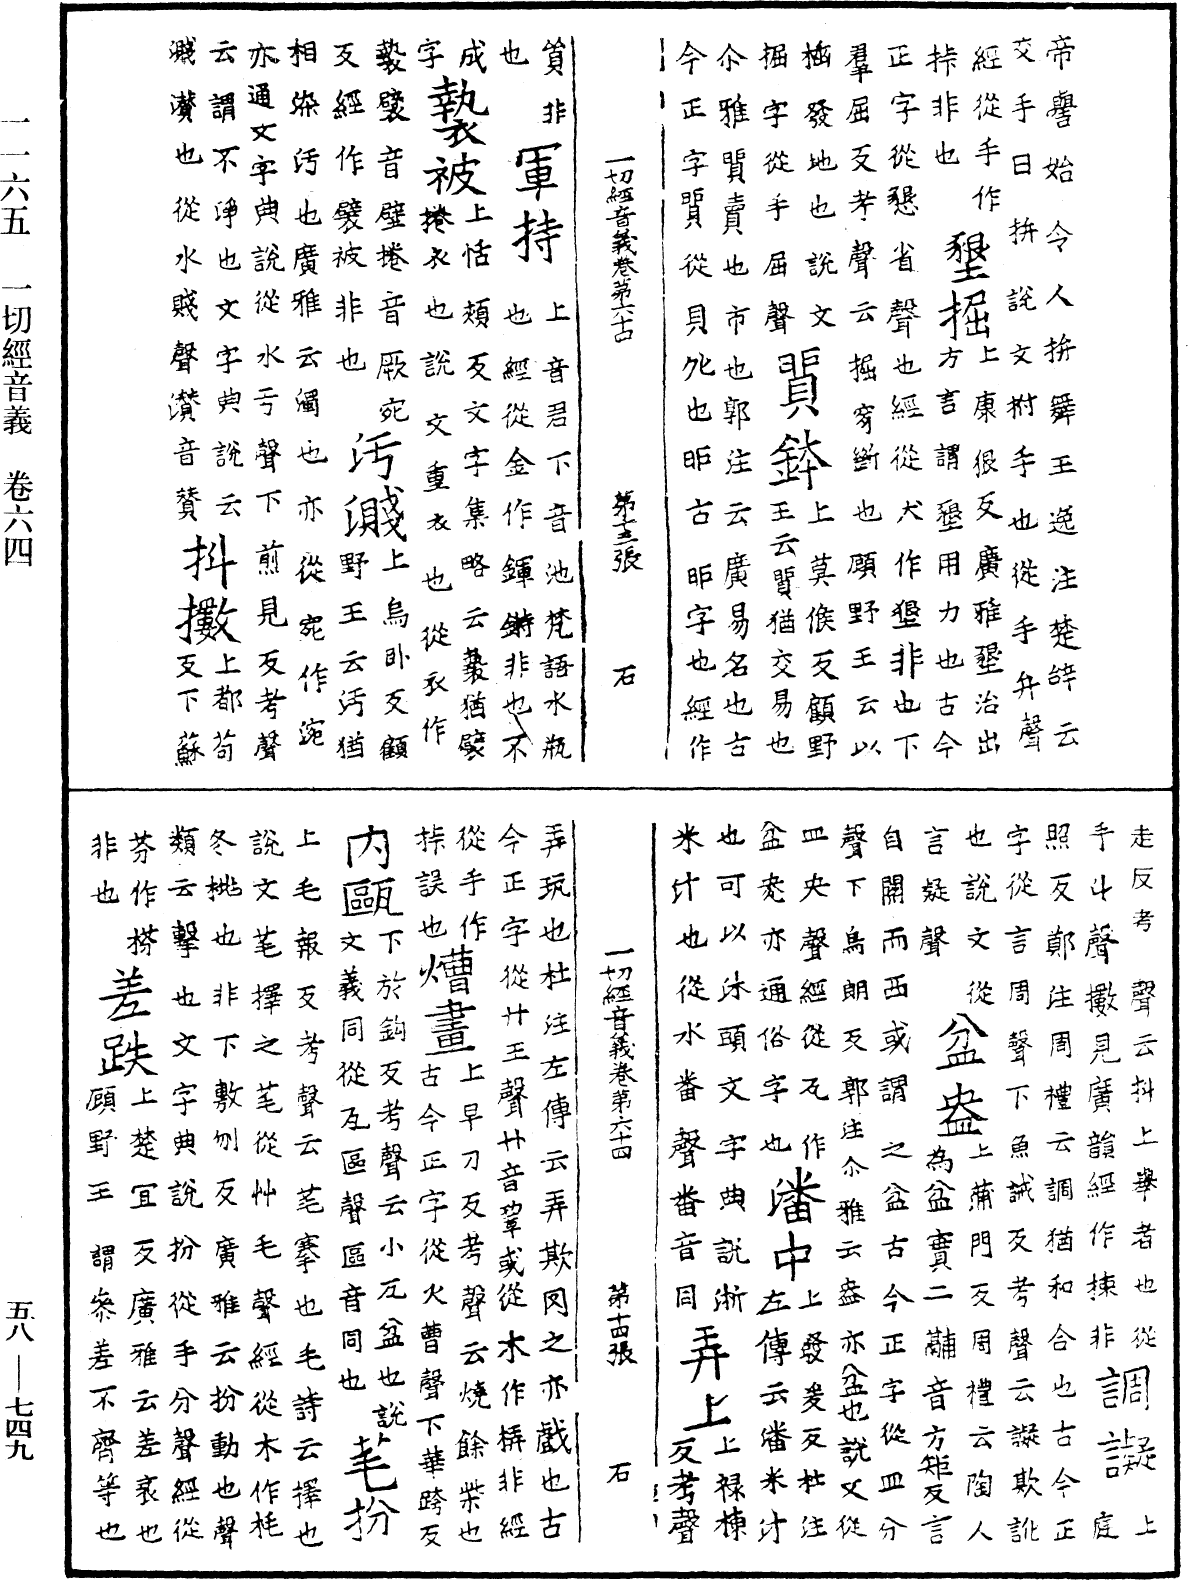 帝嚳始令人拚舞王逸注楚辝云
交手日拚說文拊手也從手弁聲
經從手作
掶非也
墾掘
上康很反廣雅墾治出
方言謂墾用力也古今
正字從懇省聲也經從犬作墾非也下
羣屈反考聲云掘穿斷也顧野王云以
㭁發地也說文
掘字從手屈聲
貿鉢
上莫候反顧野
王云貿猶交易也
尒雅貿賣也市也郭注云廣易名也古
今正字貿從貝夘也戼古戼字也經作
一切經音義卷第六十四 第十三張 石
貿非
也
軍持
上音君下音池梵語水瓶
也經從金作鍕鍗非也不
成
字
褺被
上恬頰反文字集略云褺猶襞
捲衣也說文重衣也從衣作
褺襞音壁捲音厥宛
反經作襞被非也
汚濺
上烏卧反顧
野王云汚猶
相染汚也廣雅云濁也亦從宛作涴
亦通文字典說從水亐聲下煎見反考聲
云謂不淨也文字典說云
濺灒也從水賤聲灒音贊
抖擻
上都苟
反下蘇
走反考聲云抖上舉者也從
手斗聲擻見廣韻經作揀非
調譺
上
庭
照反鄭注周禮云調猶和合也古今正
字從言周聲下魚誡反考聲云譺欺訛
也說文從
言疑聲
盆盎
上蒲門反周禮云陶人
為盆實二鬴音方矩反言
自關而西或謂之盆古今正字從皿分
聲下烏朗反郭注尒雅云盎亦盆也說文從
皿央聲經從瓦作
盆瓫亦通俗字也
潘中
上發爰反杜注
左傳云潘米汁
也可以沐頭文字典說淅
米汁也從水番聲番音同
弄上
上祿棟
反考聲
一切經音義卷第六十四 第十四張 石
弄玩也杜注左傳云弄欺罔之亦戲也古
今正字從廾王聲廾音鞏或從木作梇非經
從手作
挊誤也
㷮畫
上早刀反考聲云燒餘柴也
古今正字從火曹聲下華跨反
内甌
下於鈎反考聲云小瓦盆也說
文義同從瓦區聲區音同也
芼扮
上毛報反考聲云芼搴也毛詩云擇也
說文芼擇之芼從艸毛聲經從木作枆
冬桃也非下敷刎反廣雅云扮動也聲
類云擊也文字典說扮從手分聲經從
芬作㮥
非也
差跌
上楚冝反廣雅云差衺也
顧野王謂參差不齊等也
一一六五 一切經音義 卷六四
五八—七四九